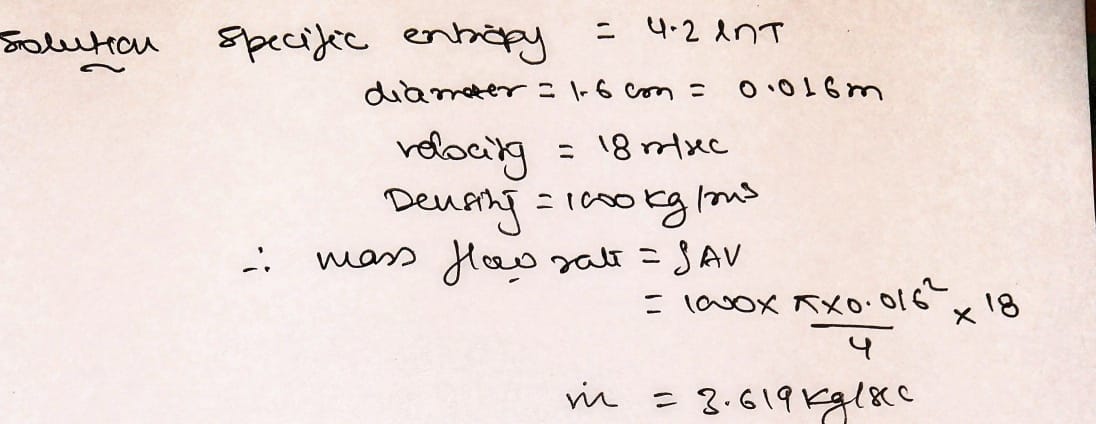 Solution Specific entropy = 4.2 lnT
diameter = 1.6 cm = 0.016m
velocity = 18 m/sec
Density = 1000 kg/m3
∴ mass flow rate = ρAV
= 1000 x π x 0.016² x 18
4
ṁ = 3.619 Kg/sec